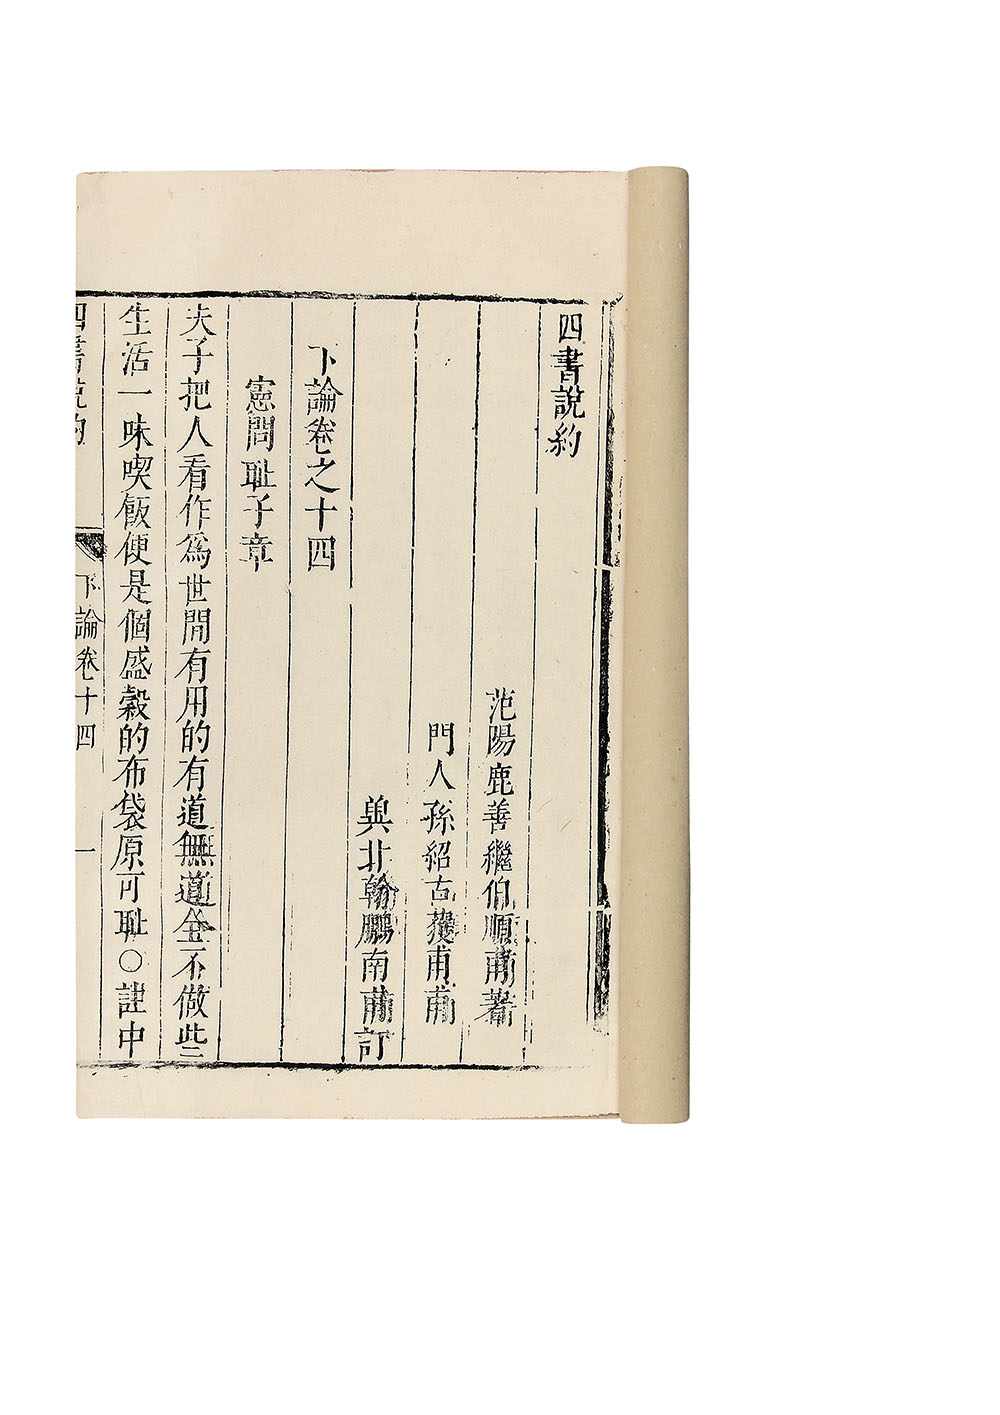 四書說約
范陽鹿善繼伯順甫著
門人孫紹古甫
與北翰鵬南甫訂
下論卷之十四
憲問耻子章
夫子把人看作爲世間有用的有道無道全不做些
生活一味喫飯便是個盛穀的布袋原可耻○註中
四書說約
下論卷十四
一